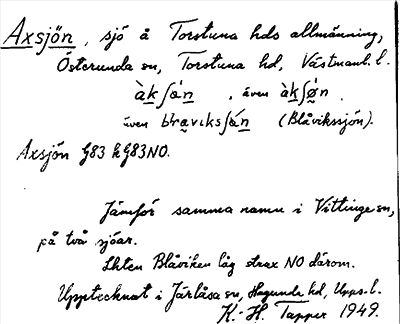 Axsjön, sjö å Torstuna hds allmänning,
Österunda sn, Torstuna hd, Västmanl. l.
àkʃǿn, även àkʃǿn.
även bravikʃǿn (Blåvikssjön).
Axsjön G83 hG83NO.
Jämför samma namn i Vittinge sn,
på två sjöar.
Lhten Blåviken låg strax NO därom.
Upptecknat i Järlåsa sn, Hagunda hd, Upps. l.
K.-H. Tapper 1949.